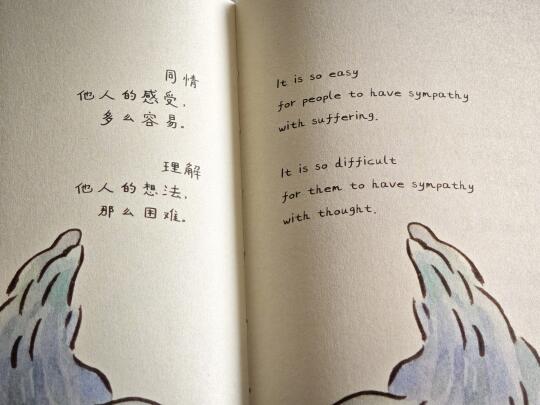 同情
他人的感受，
多么容易。
理解
他人的想法，
那么困难。
It is so easy
for people to have sympathy
with suffering.
It is so difficult
for them to have sympathy
with thought.